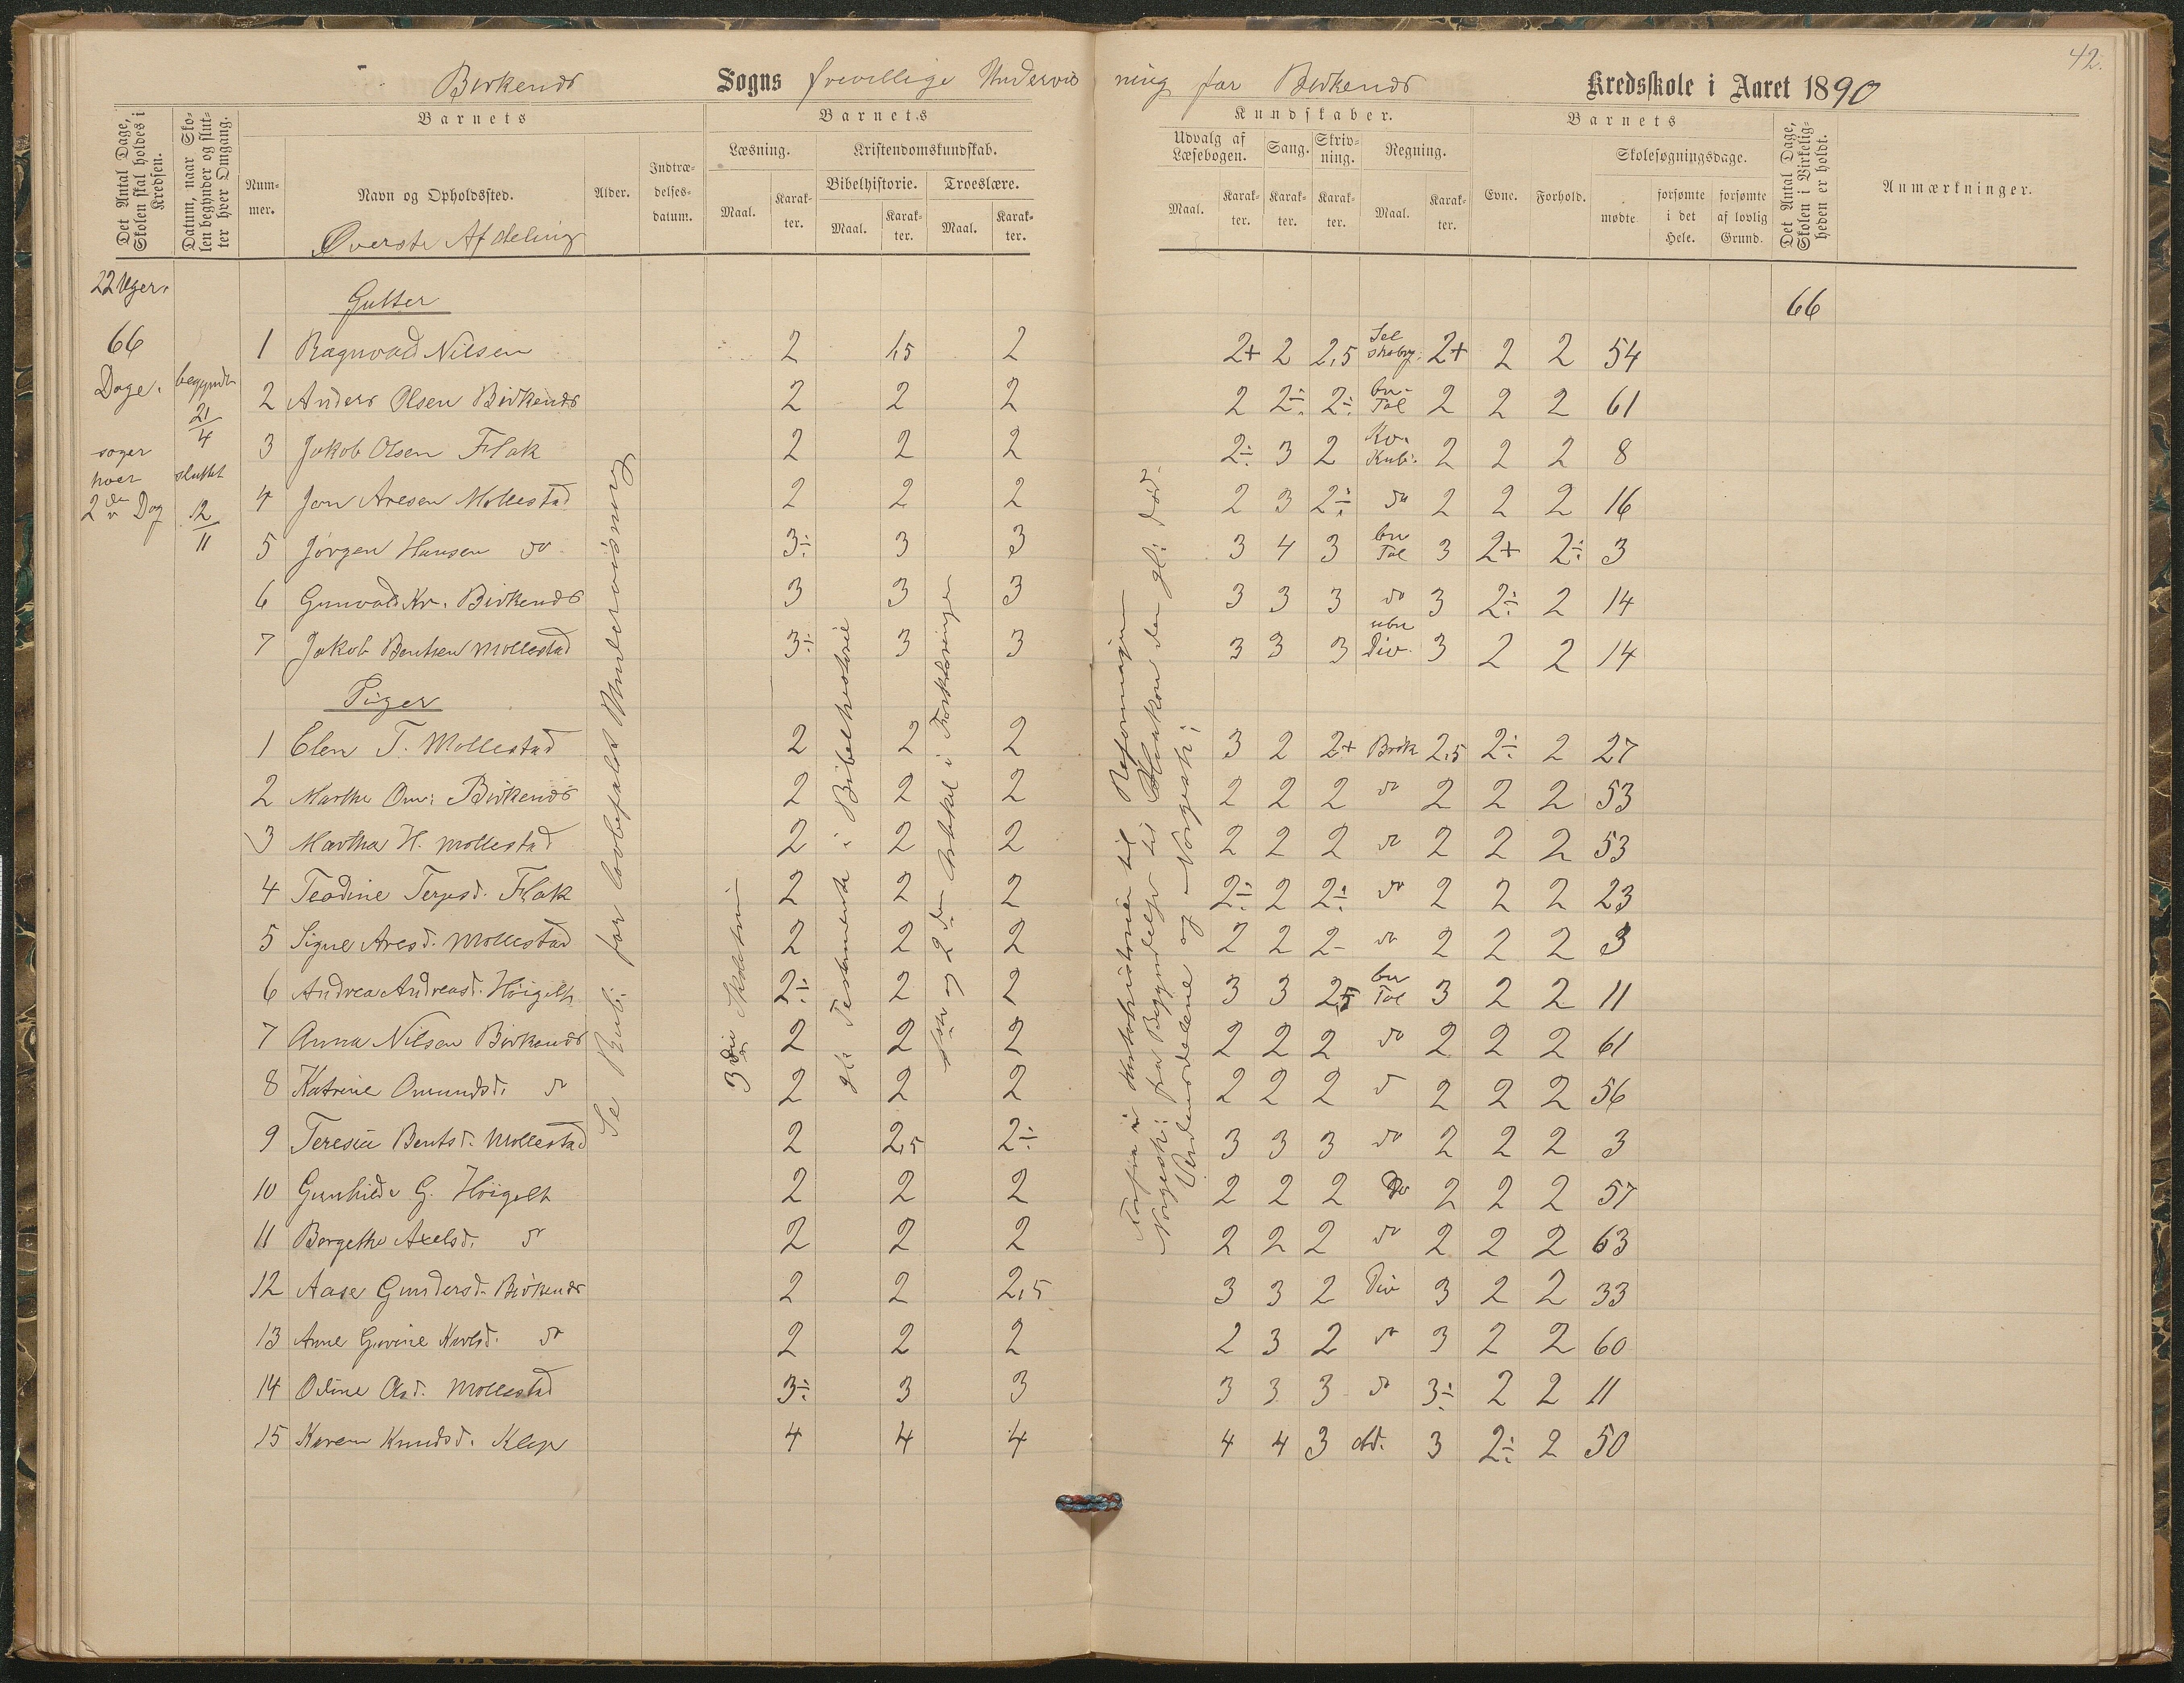 42.
Birkenes Sogns frivillige Undervisning for Birkenes Kredsskole i Aaret 1890
Det Antal Dage, Skolen skal holdes i Kredsen.
Datum, naar Skolen begynder og slutter hver Omgang.
Barnets
Nummer.
Navn og Opholdssted.
Øverste Afdeling
Alder.
Indtrædelsesdatum.
Barnets Kundskaber.
Læsning.
Maal. Karakter.
Kristendomskundskab.
Bibelhistorie. Troeslære.
Maal. Karakter. Maal. Karakter.
Udvalg af Læsebogen. Sang. Skrivning. Regning.
Maal. Karakter. Karakter. Karakter. Maal. Karakter.
Barnets
Evne. Forhold.
Skolesøgningsdage.
mødte forsømte i det Hele. forsømte af lovlig Grund.
Det Antal Dage, Skolen i Virkeligheden er holdt.
Anmærkninger.
22 Uger.
66 Dage.
søger hver 2den Dag
begyndt 21/4
sluttet 12/11
66
Se Rub. for lovbefalet Undervisning
3die Skoletrin
gl. Testamente i Bibelhistorie
1ste og 2den Artikel i Forklaringen
Norgesh: fra Begyndelse til Haakon den gl: Død.
Verdensdelene og Norgesk;
Gutter
1 Ragnvald Nilsen 2 1,5 2 2+ 2 2,5 Selskabrg: 2+ 2 2 54
2 Anders Olsen Birkenes 2 2 2 2 2÷ 2÷ bn Tal 2 2 2 61
3 Jakob Olsen Flak 2 2 2 2÷ 3 2 Kv. Kub. 2 2 2 8
4 Jon Aresen Mollestad 2 2 2 2 3 2÷ do 2 2 2 16
5 Jørgen Hansen do 3÷ 3 3 3 4 3 bn Tal 3 2+ 2÷ 3
6 Gunvald Kr. Birkenes 3 3 3 3 3 3 do 3 2÷ 2 14
7 Jakob Bentsen Mollestad 3÷ 3 3 3 3 3 ubn Div. 3 2 2 14
Piger
1 Elen T. Mollestad 2 2 2 3 2 2+ Brøk 2,5 2÷ 2 27
2 Marthe Om: Birkenes 2 2 2 2 2 2 do 2 2 2 53
3 Martha H. Mollestad 2 2 2 2 2 2 do 2 2 2 53
4 Teodine Terjesd. Flak 2 2 2 2÷ 2 2÷ do 2 2 2 23
5 Signe Aresd. Mollestad 2 2 2 2 2 2- do 2 2 2 3
6 Andrea Andreasd. Høigelt 2÷ 2 2 3 3 2,5 bn Tal 3 2 2 11
7 Anna Nilsen Birkenes 2 2 2 2 2 2 do 2 2 2 61
8 Katrine Omundsd. do 2 2 2 2 2 2 do 2 2 2 56
9 Teresia Bentsd. Mollestad 2 2,5 2÷ 3 3 3 do 2 2 2 3
10 Gunhilde G. Høigelt 2 2 2 2 2 2 do 2 2 2 57
11 Bergethe Axelsd. do 2 2 2 2 2 2 do 2 2 2 63
12 Aase Gundersd. Birkenes 2 2 2,5 3 3 2 Div 3 2 2 33
13 Anne Gurine Karlsd. do 2 2 2 2 3 2 do 3 2 2 60
14 Odine Olsd. Mollestad 3÷ 3 3 3 3 3 do 3÷ 2 2 11
15 Karen Knudsd. Klep 4 4 4 4 4 3 3 2÷ 2 50